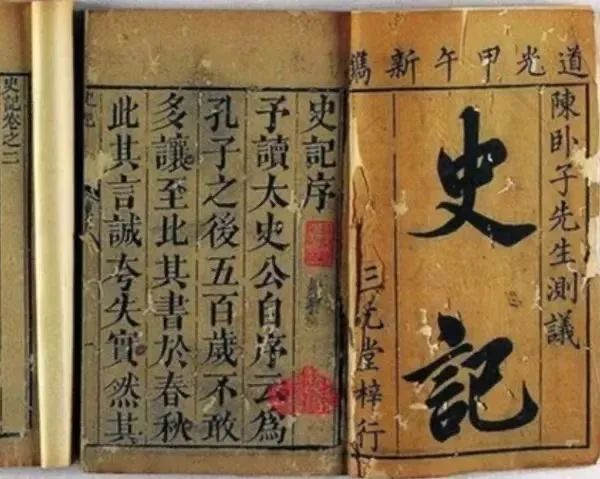 道光甲午新鐫
陳卧子先生測議
史記
三元堂梓行
史記序
予讀太史公自序云為
孔子之後五百歲不敢
多讓至比其書於春秋
此其言誠夸失實然其
史記
史記卷之二